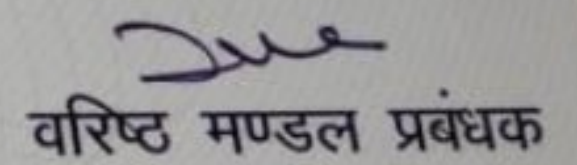 वरिष्ठ मण्डल प्रबंधक